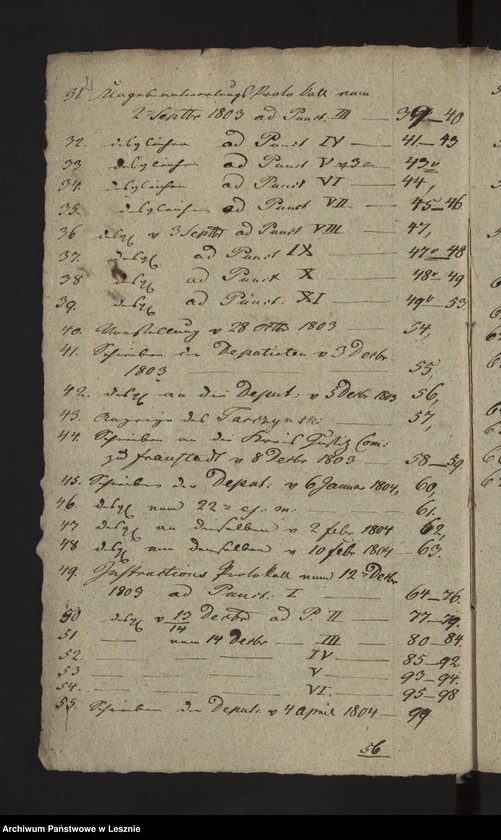 31. Klagebeantwortungs Protokoll vom
2ten Septbr 1803 ad Punct. III — 39—40
32. desgleichen ad Punct IV — 41—43
33 desgleichen ad Punct V — 43v
34. desgleichen ad Punct VI — 44,
35. desgleichen ad Punct VII — 45—46
36 desgl v 3 Septbr ad Punct VIII — 47,
37. desgl ad Punct IX — 47v—48
38 desgl ad Punct X — 48v—49
39. desgl ad Punct. XI — 49v—53.
40. Vorstellung v 28 octbr 1803 — 54,
41. Schreiben der Deputirten v 3 Decbr
1803 — 55
42. desgl an die Deput: v 5 Decbr 1803 56,
43. Anzeige des Tarczynski — 57,
44. Schreiben an die Kreis Justiz Com:
zu Fraustadt v 8 Decbr 1803 — 58—59
45. Schreiben der Deput: v 6 Januar 1804, 60,
46 desgl vom 22ten ej. m: — 61.
47 desgl an denselben v 2 febr 1804 62,
48 desgl von denselben v 10 febr 1804 — 63.
49. Instructions Protokoll vom 12ten Decbr
1803 ad Punct. I — 64—76.
50 desgl v 13/14 Decbr ad P. II — 77—79.
51 — vom 14 Decbr — III — 80—84.
52. — IV — 85—92
53 — V — 93—94.
54. — VI. — 95—98
55. Schreiben der Deput: v 4 april 1804 — 99
56
Archiwum Państwowe w Lesznie